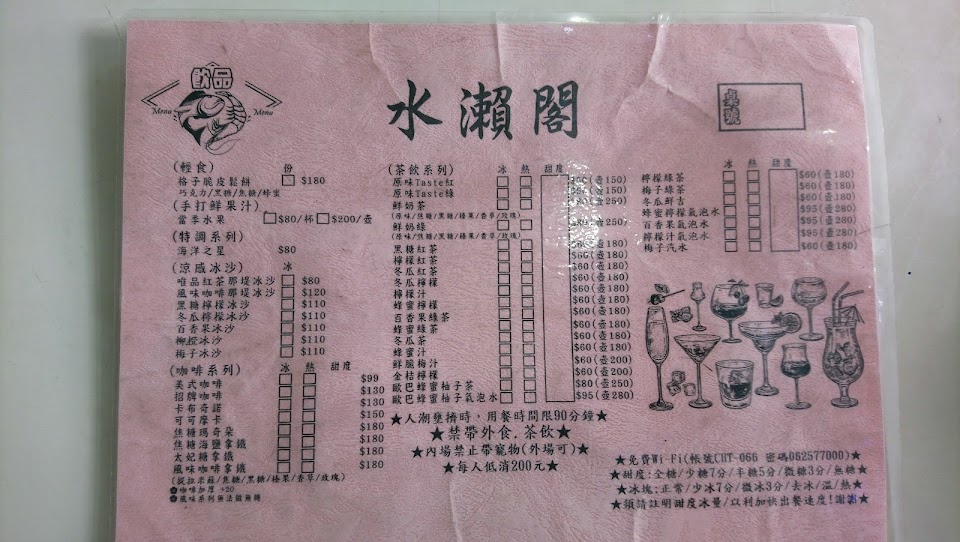 飲品
Menu Menu
水瀨閣
桌號
(輕食) 份
格子脆皮鬆餅 $180
巧克力/黑糖/焦糖/蜂蜜
(手打鮮果汁)
當季水果 $80/杯 $200/壺
(特調系列)
海洋之星 $80
(涼感冰沙) 冰
唯品紅茶那堤冰沙 $80
風味咖啡那堤冰沙 $120
黑糖檸檬冰沙 $110
冬瓜檸檬冰沙 $110
百香果冰沙 $110
柳橙冰沙 $110
梅子冰沙 $110
(咖啡系列) 冰 熱 甜度
美式咖啡 $99
招牌咖啡 $130
卡布奇諾 $130
可可摩卡 $150
焦糖瑪奇朵 $180
焦糖海鹽拿鐵 $180
太妃糖拿鐵 $180
風味咖啡拿鐵 $180
(提拉米蘇/焦糖/黑糖/榛果/香草/玫瑰)
咖啡加厚 +20
風味系列無法做無糖
(茶飲系列) 冰 熱 甜度
原味Taste紅 (壺150)
原味Taste綠 (壺150)
鮮奶茶 $80(壺250)
(原味/焦糖/黑糖/榛果/香草/玫瑰)
鮮奶綠 $80(壺250)
(原味/焦糖/黑糖/榛果/香草/玫瑰)
黑糖紅茶 $60(壺180)
檸檬紅茶 $60(壺180)
冬瓜紅茶 $60(壺180)
冬瓜檸檬 $60(壺180)
檸檬汁 $60(壺180)
蜂蜜檸檬 $60(壺180)
百香果綠茶 $60(壺180)
蜂蜜綠茶 $60(壺180)
冬瓜茶 $60(壺180)
蜂蜜汁 $60(壺180)
鮮脆梅汁 $60(壺200)
金桔檸檬 $60(壺200)
歐巴蜂蜜柚子茶 $80(壺250)
歐巴蜂蜜柚子氣泡水 $95(壺280)
★人潮壅擠時,用餐時間限90分鐘★
★禁帶外食.茶飲★
★內場禁止帶寵物(外場可)★
★每人低消200元★
冰 熱 甜度
檸檬綠茶 $60(壺180)
梅子綠茶 $60(壺180)
冬瓜鮮吉 $60(壺180)
蜂蜜檸檬氣泡水 $95(壺280)
百香果氣泡水 $95(壺280)
檸檬汁氣泡水 $95(壺280)
梅子汽水 $60(壺180)
★免費Wi-Fi(帳號CHT-066 密碼062577000)★
★甜度:全糖/少糖7分/半糖5分/微糖3分/無糖★
★冰塊:正常/少冰7分/微冰3分/去冰/溫/熱★
★須請註明甜度冰量/以利加快出餐速度!謝謝★